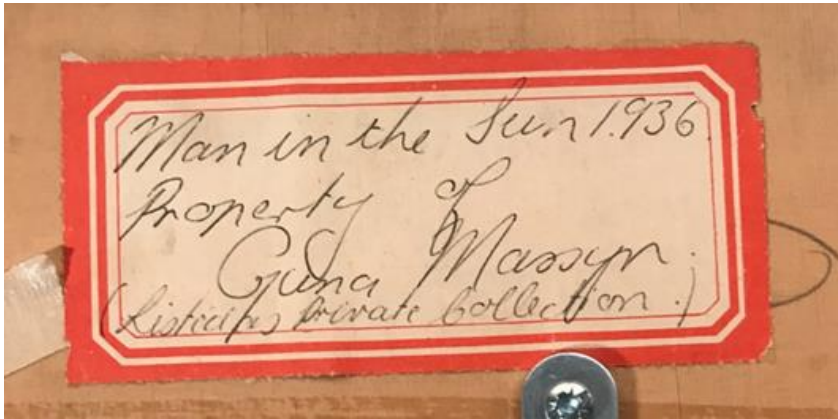 Man in the Sun 1.936.
Property of
Guna Massyn.
(Listed as Private Collection.)